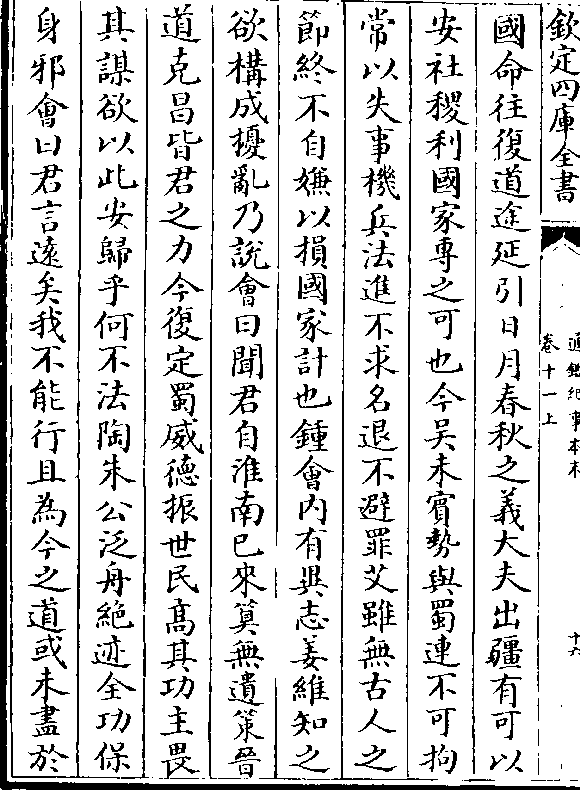 欽定四庫全書
通鑑紀事本末
卷十一上
十六
國命往復道途延引日月春秋之義大夫出疆有可以
安社稷利國家專之可也今吳未賓勢與蜀連不可拘
常以失事機兵法進不求名退不避罪艾雖無古人之
節終不自嫌以損國家計也鍾會內有異志姜維知之
欲構成擾亂乃說會曰聞君自淮南已來算無遺策晉
道克昌皆君之力今復定蜀威德振世民高其功主畏
其謀欲以此安歸乎何不法陶朱公泛舟絕迹全功保
身邪會曰君言遠矣我不能行且為今之道或未盡於